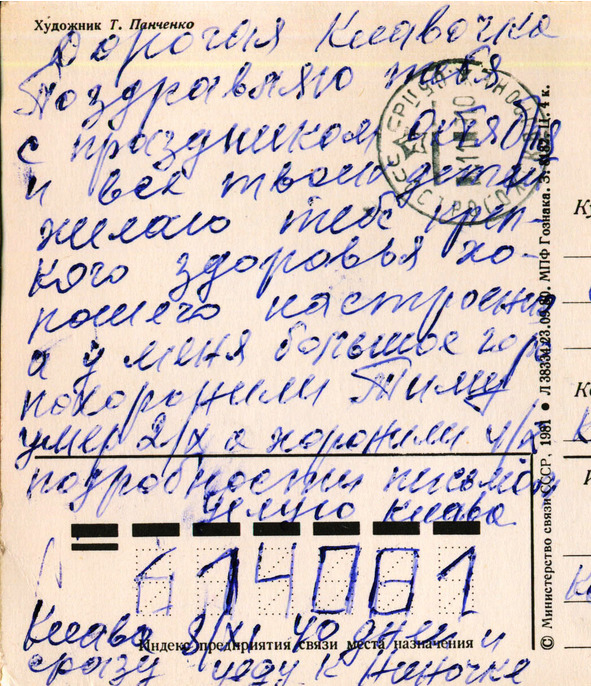 Художник Т. Панченко
Дорогая Клавочка
Поздравляю тебя
с праздником октября
и всех твоих детей
желаю тебе креп-
кого здоровья хо-
рошего настроения
а у меня большое горе
похоронили Тиму
умер 2/х а хоронили 4/х
подробности письмом
целую Клава
Индекс предприятия связи места назначения
Клава 8/XI 40 дней и
сразу уеду к Ниночке
© Министерство связи СССР, 1981 ● Л 38334 23.09.80. МПФ Гознака. З. Ц. 4 к.